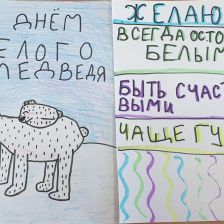 ДНЁМ
ЕЛОГО
МЕДВЕДЯ
ЖЕЛАЮ
ВСЕГДА ОСТО
БЕЛЫМ
БЫТЬ СЧАСТ
ВЫМИ
ЧАЩЕ ГУ